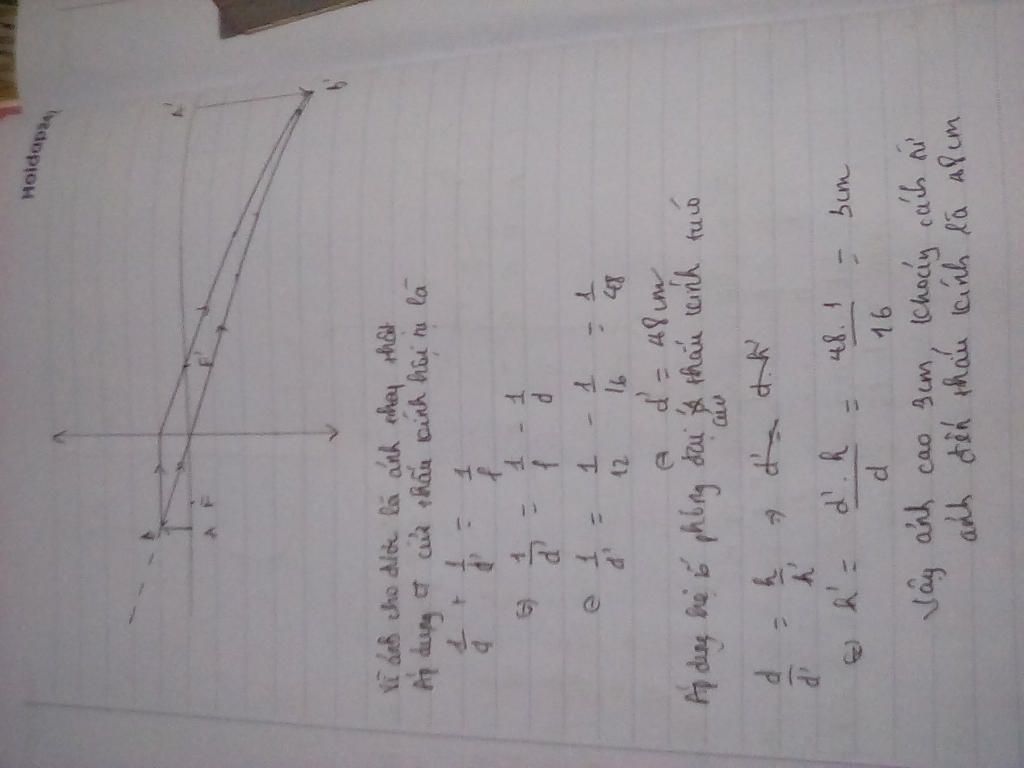 Hoidap247
B
A
F
F'
A'
B'
Vì ảnh cho dược là ảnh nhay thôi
Áp dụng ct của thấu kính hội tụ là
1/d + 1/d' = 1/f
⇔ 1/d' = 1/f - 1/d
⇔ 1/d' = 1/12 - 1/16 = 1/48
⇔ d' = 48 cm
Áp dụng hệ số phóng đại của thấu kính ta có
d/d' = h/h' ⇒ d' = d.h'
⇔ h' = d'.h/d = 48.1/16 = 3cm
Vậy ảnh cao 3cm khoảng cách từ
ảnh đến thấu kính là 48cm